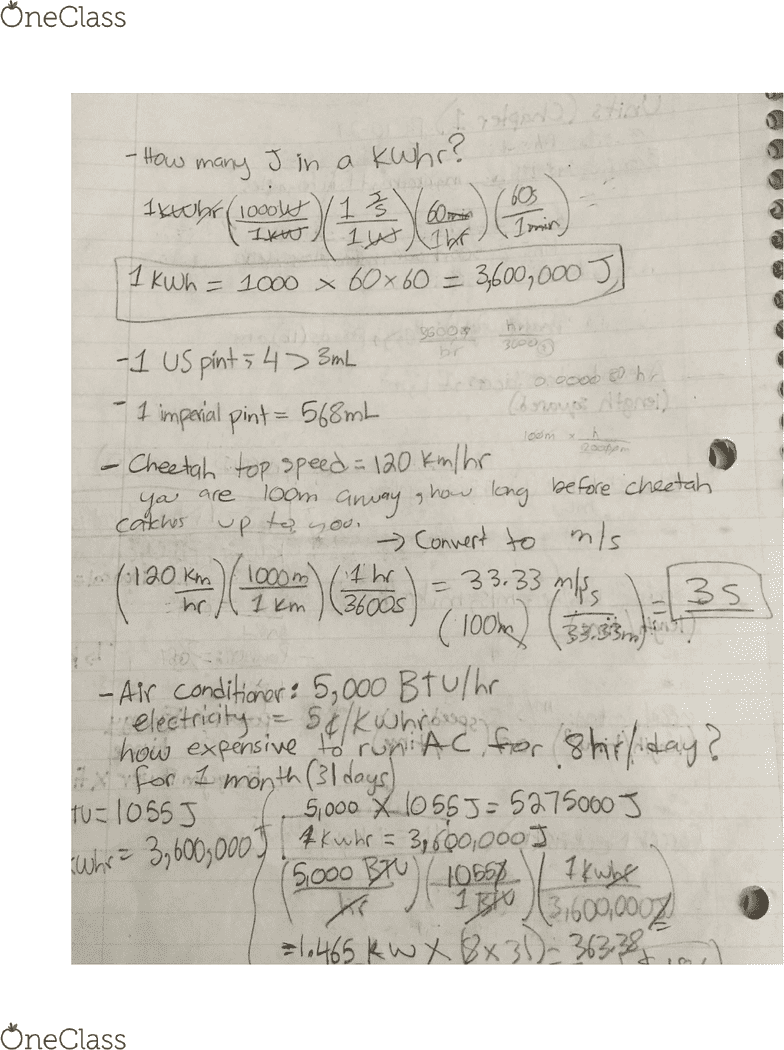 OneClass
- How many J in a kWhr?
1kWhr (1000W / 1kW) (1 J/s / 1W) (60min / 1hr) (60s / 1min) =
1 kWh = 1000 × 60×60 = 3,600,000 J
-1 US pint = 4 > 3mL
- 1 imperial pint = 568mL
- Cheetah top speed = 120 km/hr
you are 100m away, how long before cheetah
catches up to you.
→ Convert to m/s
(120 km / hr) (1000m / 1 km) (1 hr / 3600s) = 33.33 m/s
(100m) (s / 33.33m) = 3s
- Air conditioner: 5,000 BTU/hr
electricity = 5¢/kwhr
how expensive to run AC for 8hr/day?
for 1 month (31 days)
TU = 1055 J
5,000 × 1055 J = 5275000 J
kwhr = 3,600,000 J
1 kwhr = 3,600,000 J
(5,000 BTU / hr) (1055J / 1 BTU) (1 kwhr / 3,600,000J) =
=1.465 kW × (8×31) = 363.38
OneClass